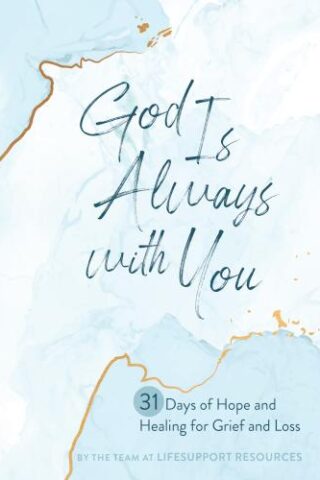 God Is
Always
with You
31 Days of Hope and
Healing for Grief and Loss
BY THE TEAM AT LIFESUPPORT RESOURCES